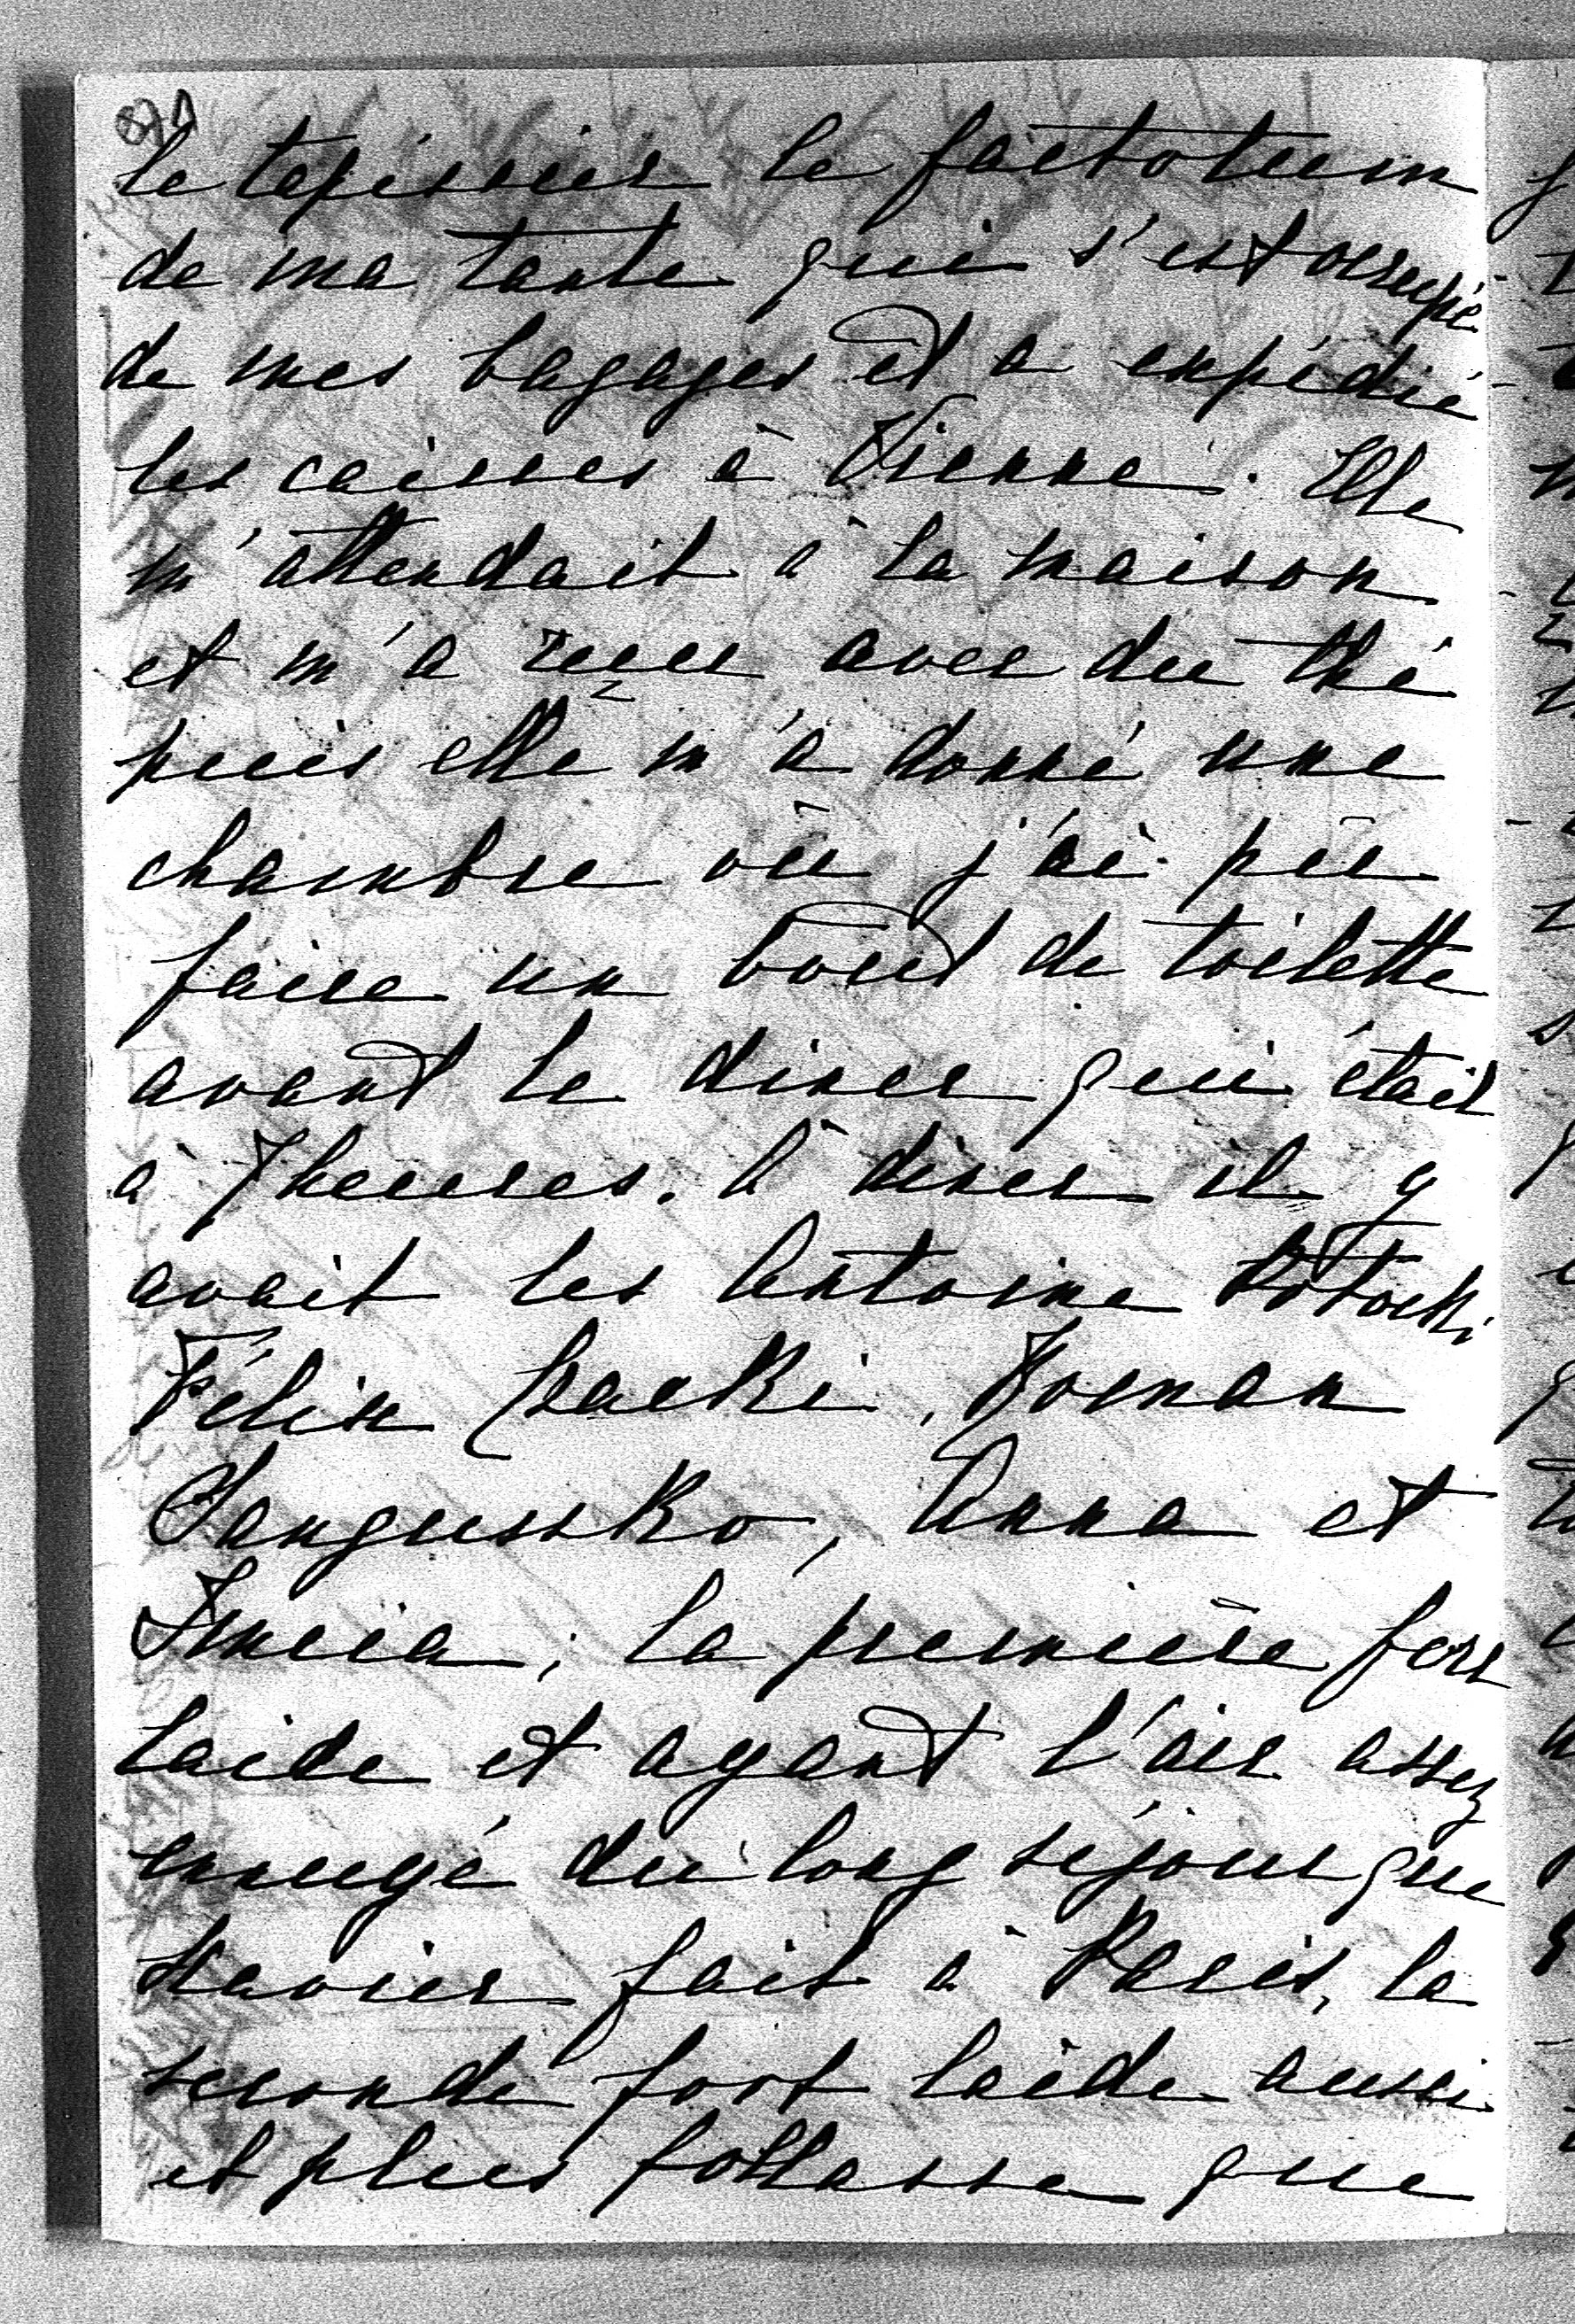 le tapissier le factotum
de ma tante qui s'est occupé
de mes bagages et a expédié
les caisses à Vienne. Elle
m'attendait à la maison
et m'a reçu avec du thé
puis elle m'a donné une
chambre où j'ai pu
faire un bout de toilette
avant le diner qui était
à 7 heures. A diner il y
avait les Antoine Potocki
Félix Czacki, Roman
Sanguszko, Anna et
la première fort
laide et ayant l'air assez
ennuyé du long séjour que
Xavier fait à Paris, la
seconde fort laide aussi
et plus follasse que